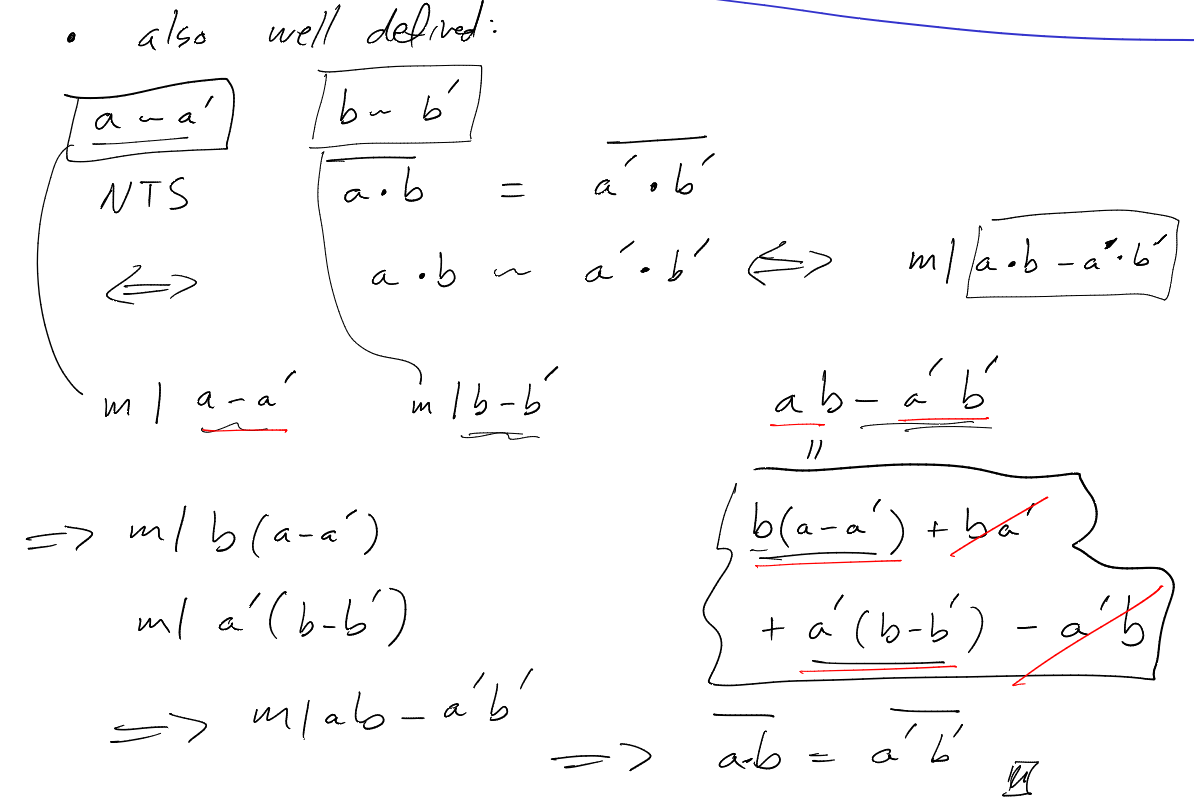 • also well defined:
a ~ a′ b ~ b′
NTS \overline{a · b} = \overline{a′ · b′}
⟺ a · b ~ a′ · b′ ⟺ m | a · b − a′ · b′
m | a − a′ m | b − b′ ab − a′b′
=
⟹ m | b(a − a′) b(a − a′) + ba′
m | a′(b − b′) + a′(b − b′) − a′b
⟹ m | ab − a′b′
⟹ \overline{a·b} = \overline{a′b′}